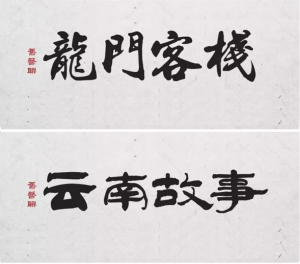 龍門客棧
云南故事